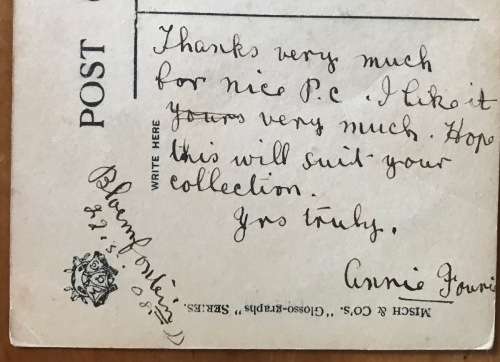 POST
WRITE HERE
Thanks very much
for nice P.c. I like it
yours very much. Hope
this will suit your
collection.
Yrs truly.
Annie
Bloemfontein
22.5.08.
MISCH & CO'S. "Glosso-graphs" SERIES.